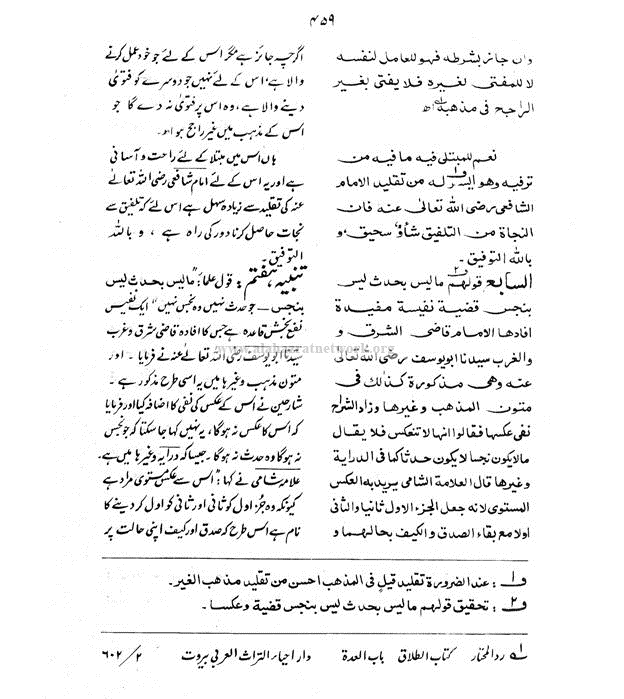 ۴۵۹
وان جاز بشرطه فهو للعامل لنفسه
لا للمفتی لغیرہ فلا یفتی بغیر
الراجح فی مذھبه اھ
نعم للمبتلی فیه ما فیه من
ترفیه وھو ایسر له من تقلید الامام
الشافعی رضی الله تعالٰی عنه فان
النجاة من التلفیق شأو سحیق، و
بالله التوفیق۔
السابع قولھم ما لیس بحدث لیس
بنجس قضیة نفیسة مفیدة
افادھا الامام قاضی الشرق و
والغرب سیدنا ابویوسف رضی الله تعالٰی
عنه وھی مذکورة کذلك فی
متون المذھب وغیرھا وزاد الشراح
نفی عکسھا فقالوا انھا لا تنعکس فلا یقال
مالایکون نجسا لایکون حدثا کما فی الدرایة
وغیرھا قال العلامة الشامی یرید به العکس
المستوی لانه جعل الجزء الاول ثانیا والثانی
اولا مع بقاء الصدق و الکیف بحالھما و
اگرچہ جائز ہے مگر اس کے لئے جو خود عمل کرنے
والا ہے، اس کے لئے نہیں جو دوسرے کو فتوٰی
دینے والا ہے، وہ اس پر فتوٰی نہ دے گا جو
اس کے مذہب میں غیر راجح ہو اھ۔
ہاں اس میں مبتلا کے لئے راحت و آسانی
ہے اور یہ اس کے لئے امام شافعی رضی اللہ تعالٰے
عنہ کی تقلید سے زیادہ سہل ہے اس لئے کہ تلفیق سے
نجات حاصل کرنا دور کی راہ ہے، و باللہ
التوفیق۔
تنبیہ ہفتم : قولِ علماء: "مالیس بحدث لیس
بنجس ــ جو حدث نہیں وہ نجس نہیں" ایک نفیس
نفع بخش قاعدہ ہے جس کا افادہ قاضی شرق و غرب
سیدنا ابویوسف رضی اللہ تعالٰے عنہ نے فرمایا۔ اور
متونِ مذہب وغیرہا میں یہ اسی طرح مذکور ہے۔
شارحین نے اس کے عکس کی نفی کا اضافہ کیا اور فرمایا
کہ اس کا عکس نہ ہوگا، یہ نہیں کہا جاسکتا کہ جو نجس
نہ ہوگا وہ حدث نہ ہوگا۔ جیسا کہ درایہ وغیرہا میں ہے۔
علامہ شامی نے کہا: "اس سے عکس مستوی مراد ہے
کیونکہ وہ جُزءِ اول کو ثانی اور ثانی کو اول کر دینے کا
نام ہے اس طرح کہ صدق اور کیف اپنی حالت پر
ف۱ : عند الضرورة تقلید قیل فی المذھب احسن من تقلید مذھب الغیر۔
ف۲ : تحقیق قولھم ما لیس بحدث لیس بنجس قضیة وعکسا۔
۱؎ ردالمحتار کتاب الطلاق باب العدة دار احیاء التراث العربی بیروت ۲/ ۶۰۲
www.alahazratnetwork.org